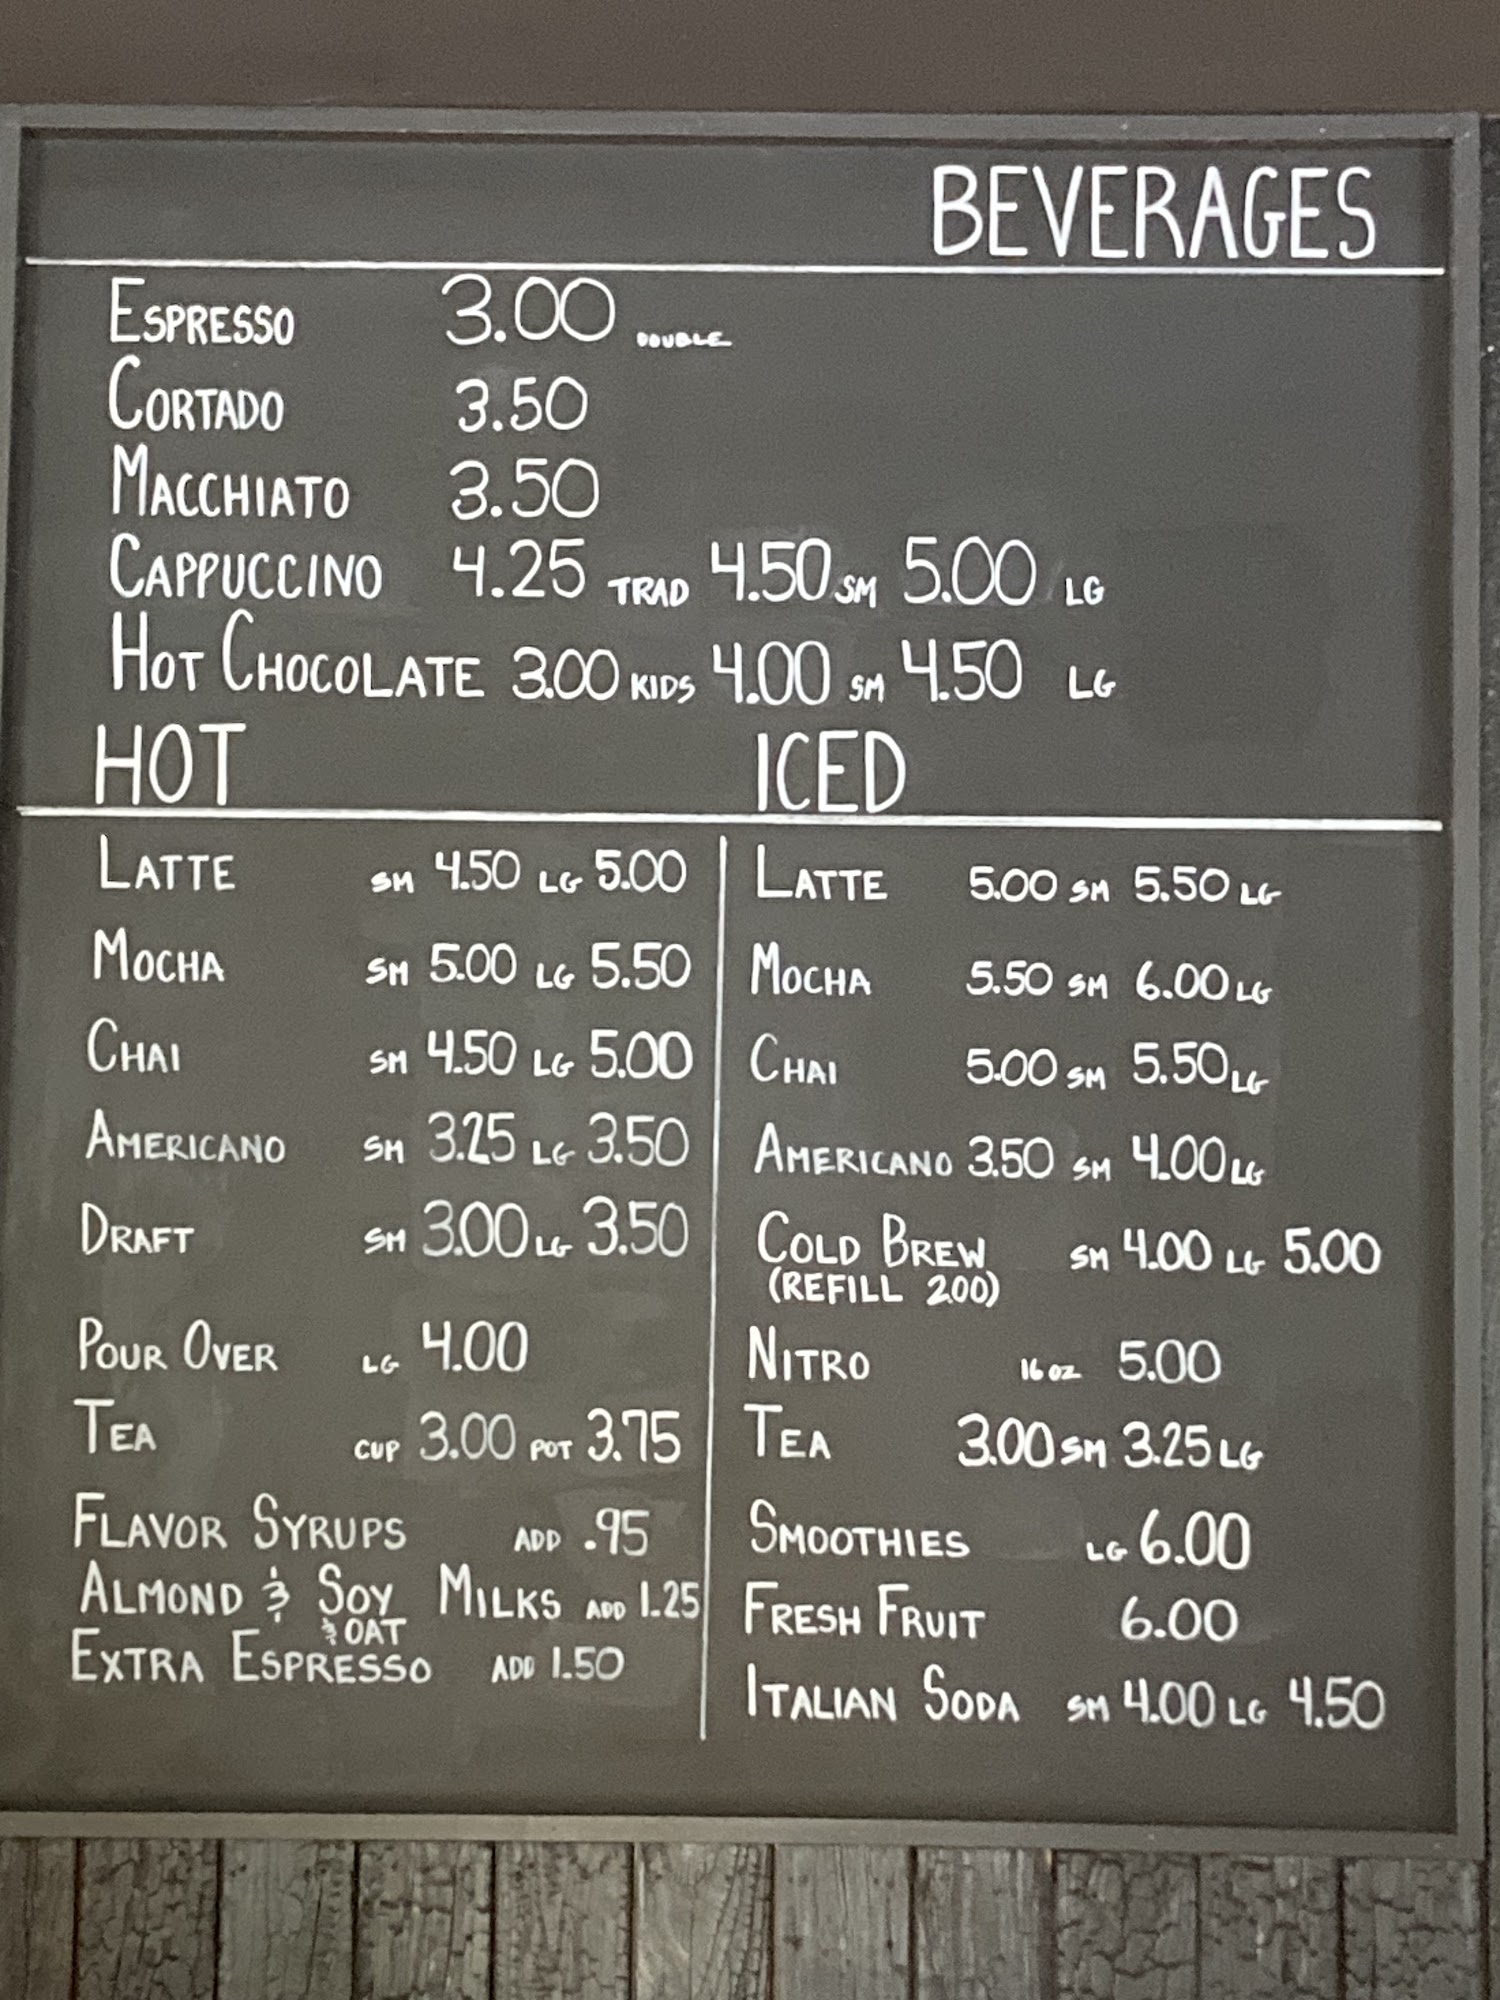 BEVERAGES
ESPRESSO 3.00 DOUBLE
CORTADO 3.50
MACCHIATO 3.50
CAPPUCCINO 4.25 TRAD 4.50 SM 5.00 LG
HOT CHOCOLATE 3.00 KIDS 4.00 SM 4.50 LG
HOT
LATTE SM 4.50 LG 5.00
MOCHA SM 5.00 LG 5.50
CHAI SM 4.50 LG 5.00
AMERICANO SM 3.25 LG 3.50
DRAFT SM 3.00 LG 3.50
POUR OVER LG 4.00
TEA CUP 3.00 POT 3.75
FLAVOR SYRUPS ADD .95
ALMOND & SOY MILKS ADD 1.25
& OAT
EXTRA ESPRESSO ADD 1.50
ICED
LATTE 5.00 SM 5.50 LG
MOCHA 5.50 SM 6.00 LG
CHAI 5.00 SM 5.50 LG
AMERICANO 3.50 SM 4.00 LG
COLD BREW SM 4.00 LG 5.00
(REFILL 2.00)
NITRO 16 OZ 5.00
TEA 3.00 SM 3.25 LG
SMOOTHIES LG 6.00
FRESH FRUIT 6.00
ITALIAN SODA SM 4.00 LG 4.50